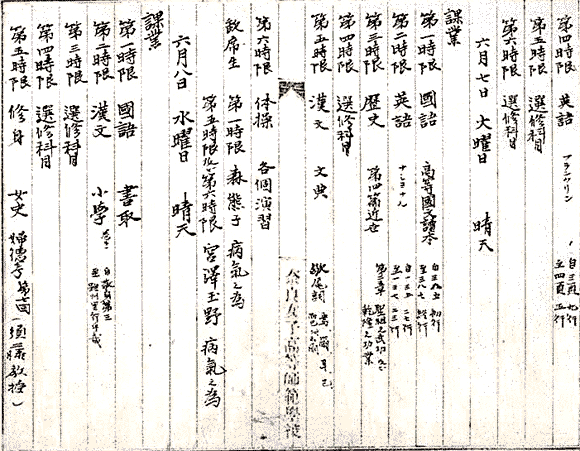 第四時限 英語 フランクリン 自三頁九行 至四頁五行
第五時限 選修科目
第六時限 選修科目
六月七日 火曜日 晴天
課業
第一時限 國語 高等國文讀本 自三九五 初行 至三八七 終行
第二時限 英語 ナショナル 自一三五 二七行 至一三七 二三行
第三時限 歴史 第四篇近世 第三章 聖祖之武功 乾隆之功業
第四時限 選修科目
第五時限 漢文 文典 歇尾詞
第六時限 体操 各個演習
奈良女子高等師範學校
欠席生 第一時限 森熊子 病氣之為
第五時限及第六時限 宮澤玉野 病氣之為
六月八日 水曜日 晴天
課業
第一時限 國語 書取
第二時限 漢文 小學
第三時限 選修科目
第四時限 選修科目
第五時限 修身 女史 婦徳 第 (須藤教授)